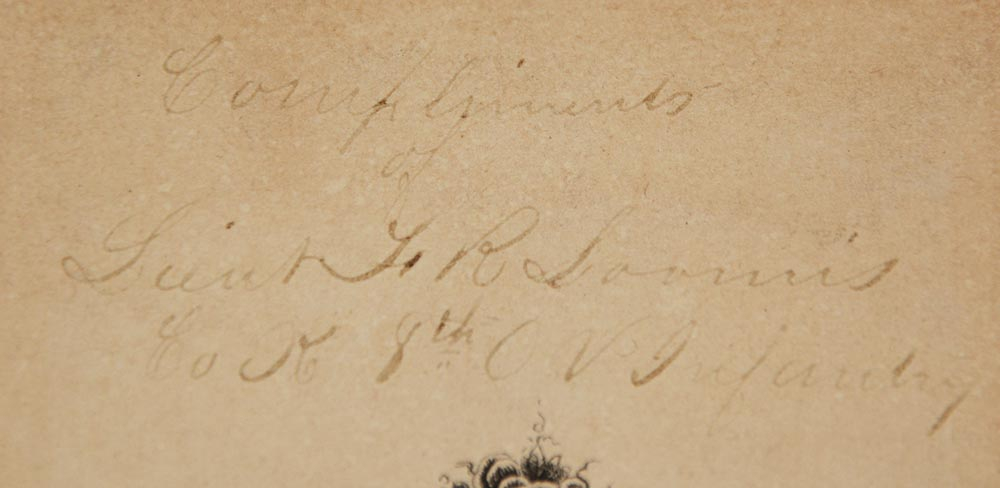 Compliments
of
Lieut F. R Loomis
Co K 8th O V Infantry